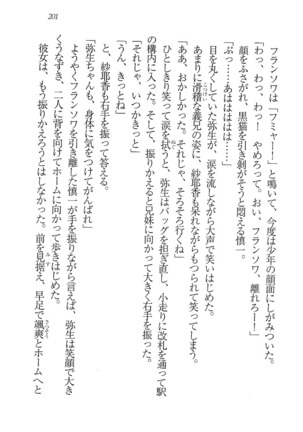 201
フランソワは「フミャー！」と鳴いて、今度は少年の顔面にしがみついた。
「わっ、わっ、わっ！　やめろって。おい、フランソワ、離れろー！」
顔をふさがれ、黒猫を引き剥がそうと悶える慎一。
「ぷっ……あはははははっ」
目を丸くしていた弥生が、涙を流しながら大声で笑いはじめた。
あまりに滑稽な義兄の姿に、紗耶香も呆れながらもつられて笑ってしまう。
「ああ、おかしかった。それじゃ、そろそろ行くね」
ひとしきり笑って涙を拭うと、弥生はバッグを担ぎ直し、小走りに改札を通って駅
の構内に入った。そして、振りかえると兄妹に向かって大きく右手を振った。
「それじゃ、いつかきっと」
「うん、きっとね」
と、紗耶香も右手を振って答える。
「弥生ちゃんも、身体に気をつけてがんばれ」
ようやくフランソワを引き離した慎一が手を振りながら言えば、弥生は笑顔で大き
くうなずき、二人に背を向けてホームに向かって歩きはじめた。
彼女は、もう振りかえろうとはしなかった。前を見据え、早足で颯爽とホームへと